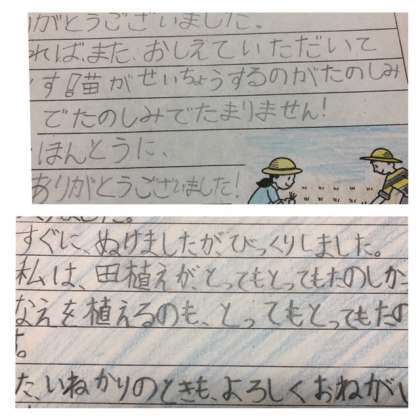 がとうございました。
れば、また、おしえていただいて
す 苗がせいちょうするのがたのしみ
でたのしみでたまりません!
ほんとうに、
ありがとうございました!
ました。
すぐに、ぬけましたが、びっくりしました。
私は、田植えが、とってもとってもたのしかっ
なえを植えるのも、とってもとってもたの
た、いねかりのときも、よろしくおねがい